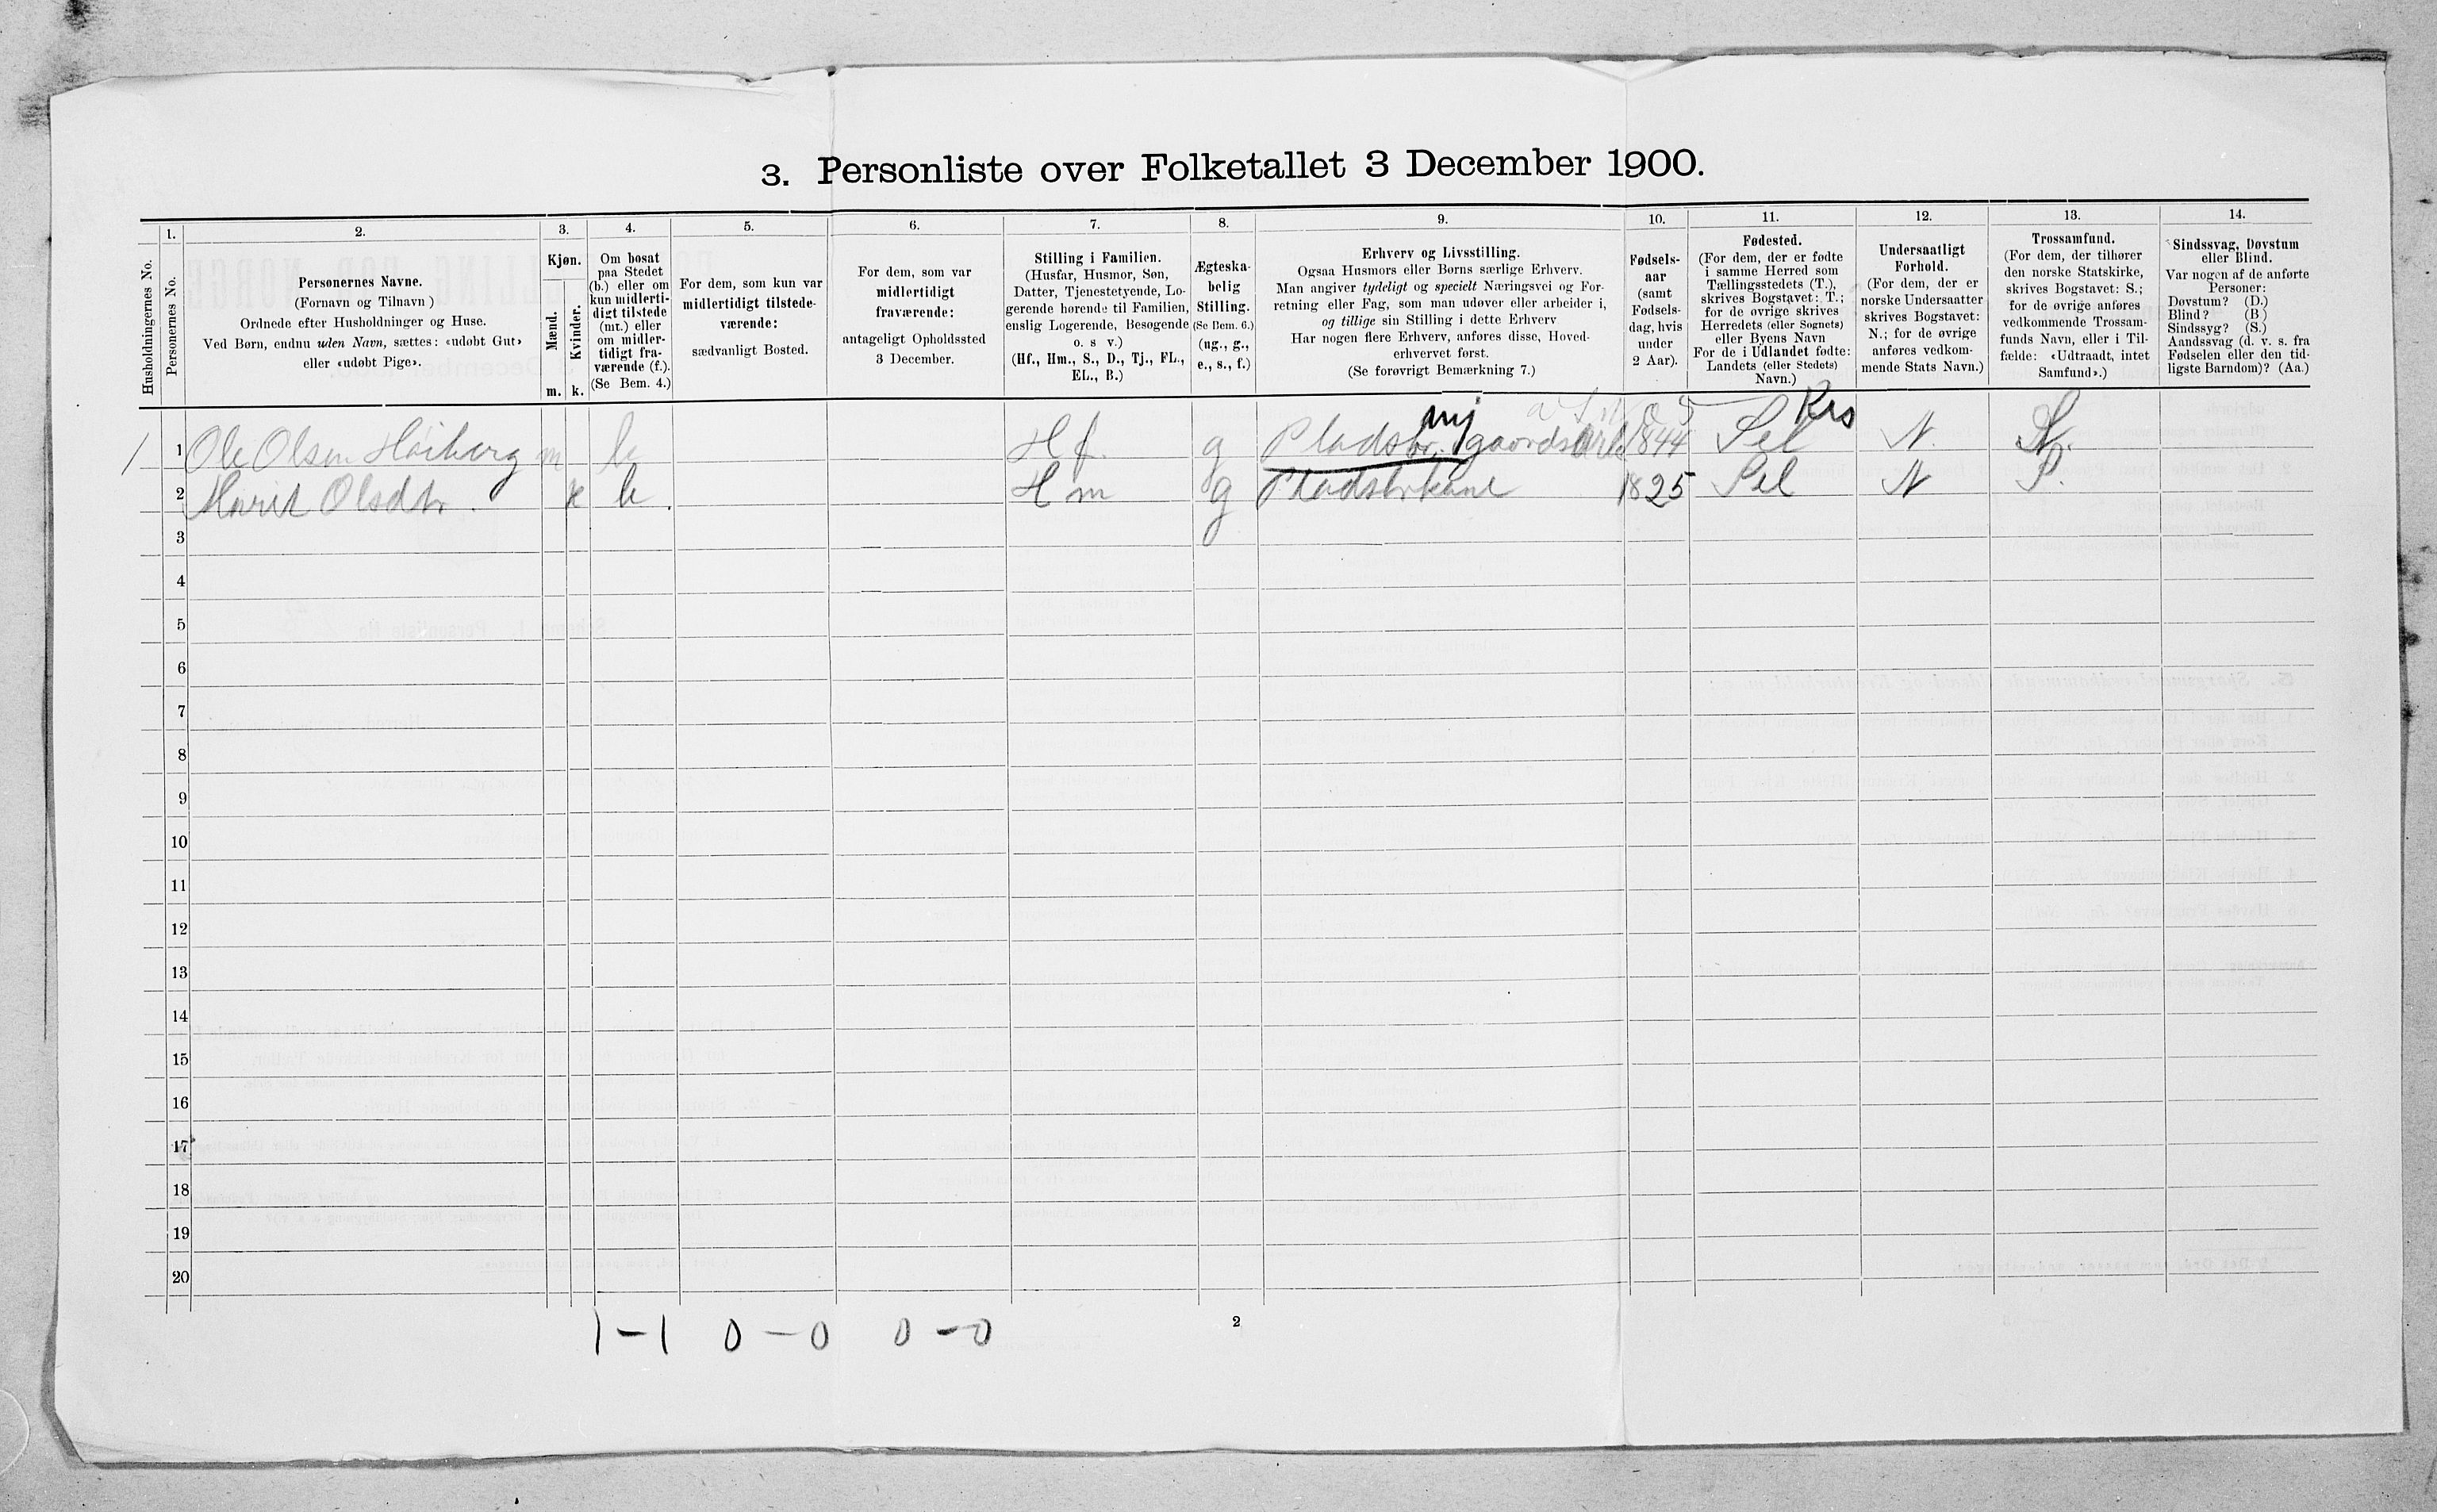 3. Personliste over Folketallet 3 December 1900.
Husholdningernes No.
1.
Personernes No.
2.
Personernes Navne.
(Fornavn og Tilnavn )
Ordnede efter Husholdninger og Huse.
Ved Børn, endnu uden Navn, sættes: «udøbt Gut»
eller «udøbt Pige».
3.
Kjøn.
Mænd.
Kvinder.
m. k.
4.
Om bosat
paa Stedet
(b.) eller om
kun midlerti-
digt tilstede
(mt.) eller
om midler-
tidigt fra-
værende (f.).
(Se Bem. 4.)
5.
For dem, som kun var
midlertidigt tilstede-
værende:
sædvanligt Bosted.
6.
For dem, som var
midlertidigt
fraværende:
antageligt Opholdssted
3 December.
7.
Stilling i Familien.
(Husfar, Husmor, Søn,
Datter, Tjenestetyende, Lo-
gerende hørende til Familien,
enslig Logerende, Besøgende
o. s v.)
(Hf., Hm., S., D., Tj., FL.,
EL., B.)
8.
Ægteska-
belig
Stilling.
(Se Bem. 6.)
(ug., g.,
e., s., f.)
9.
Erhverv og Livsstilling.
Ogsaa Husmors eller Børns særlige Erhverv.
Man angiver tydeligt og specielt Næringsvei og For-
retning eller Fag, som man udøver eller arbeider i,
og tillige sin Stilling i dette Erhverv
Har nogen flere Erhverv, anføres disse, Hoved-
erhvervet først.
(Se forøvrigt Bemærkning 7.)
10.
Fødsels-
aar
(samt
Fødsels-
dag, hvis
under
2 Aar).
11.
Fødested.
(For dem, der er fødte
i samme Herred som
Tællingsstedets (T.),
skrives Bogstavet: T.;
for de øvrige skrives
Herredets (eller Sognets)
eller Byens Navn
For de i Udlandet fødte:
Landets (eller Stedets)
Navn.)
12.
Undersaatligt
Forhold.
(For dem, der er
norske Undersaatter
skrives Bogstavet:
N.; for de øvrige
anføres vedkom-
mende Stats Navn.)
13.
Trossamfund.
(For dem, der tilhører
den norske Statskirke,
skrives Bogstavet: S.;
for de øvrige anføres
vedkommende Trossam-
funds Navn, eller i Til-
fælde: «Udtraadt, intet
Samfund».)
14.
Sindssvag, Døvstum
eller Blind.
Var nogen af de anførte
Personer:
Døvstum? (D.)
Blind? (B.)
Sindssyg? (S.)
Aandssvag (d. v. s. fra
Fødselen eller den tid-
ligste Barndom)? (Aa.)
1 1 Ole Olsen Høiberg m b Hf. g Pladsbr. gaardsarb 1844 Sel N. S.
2 Marit Olsdtr. k b. Hm g Pladsbrkone 1825 Sel N S.
3
4
5
6
7
8
9
10
11
12
13
14
15
16
17
18
19
20
1-1 0-0 0-0
2